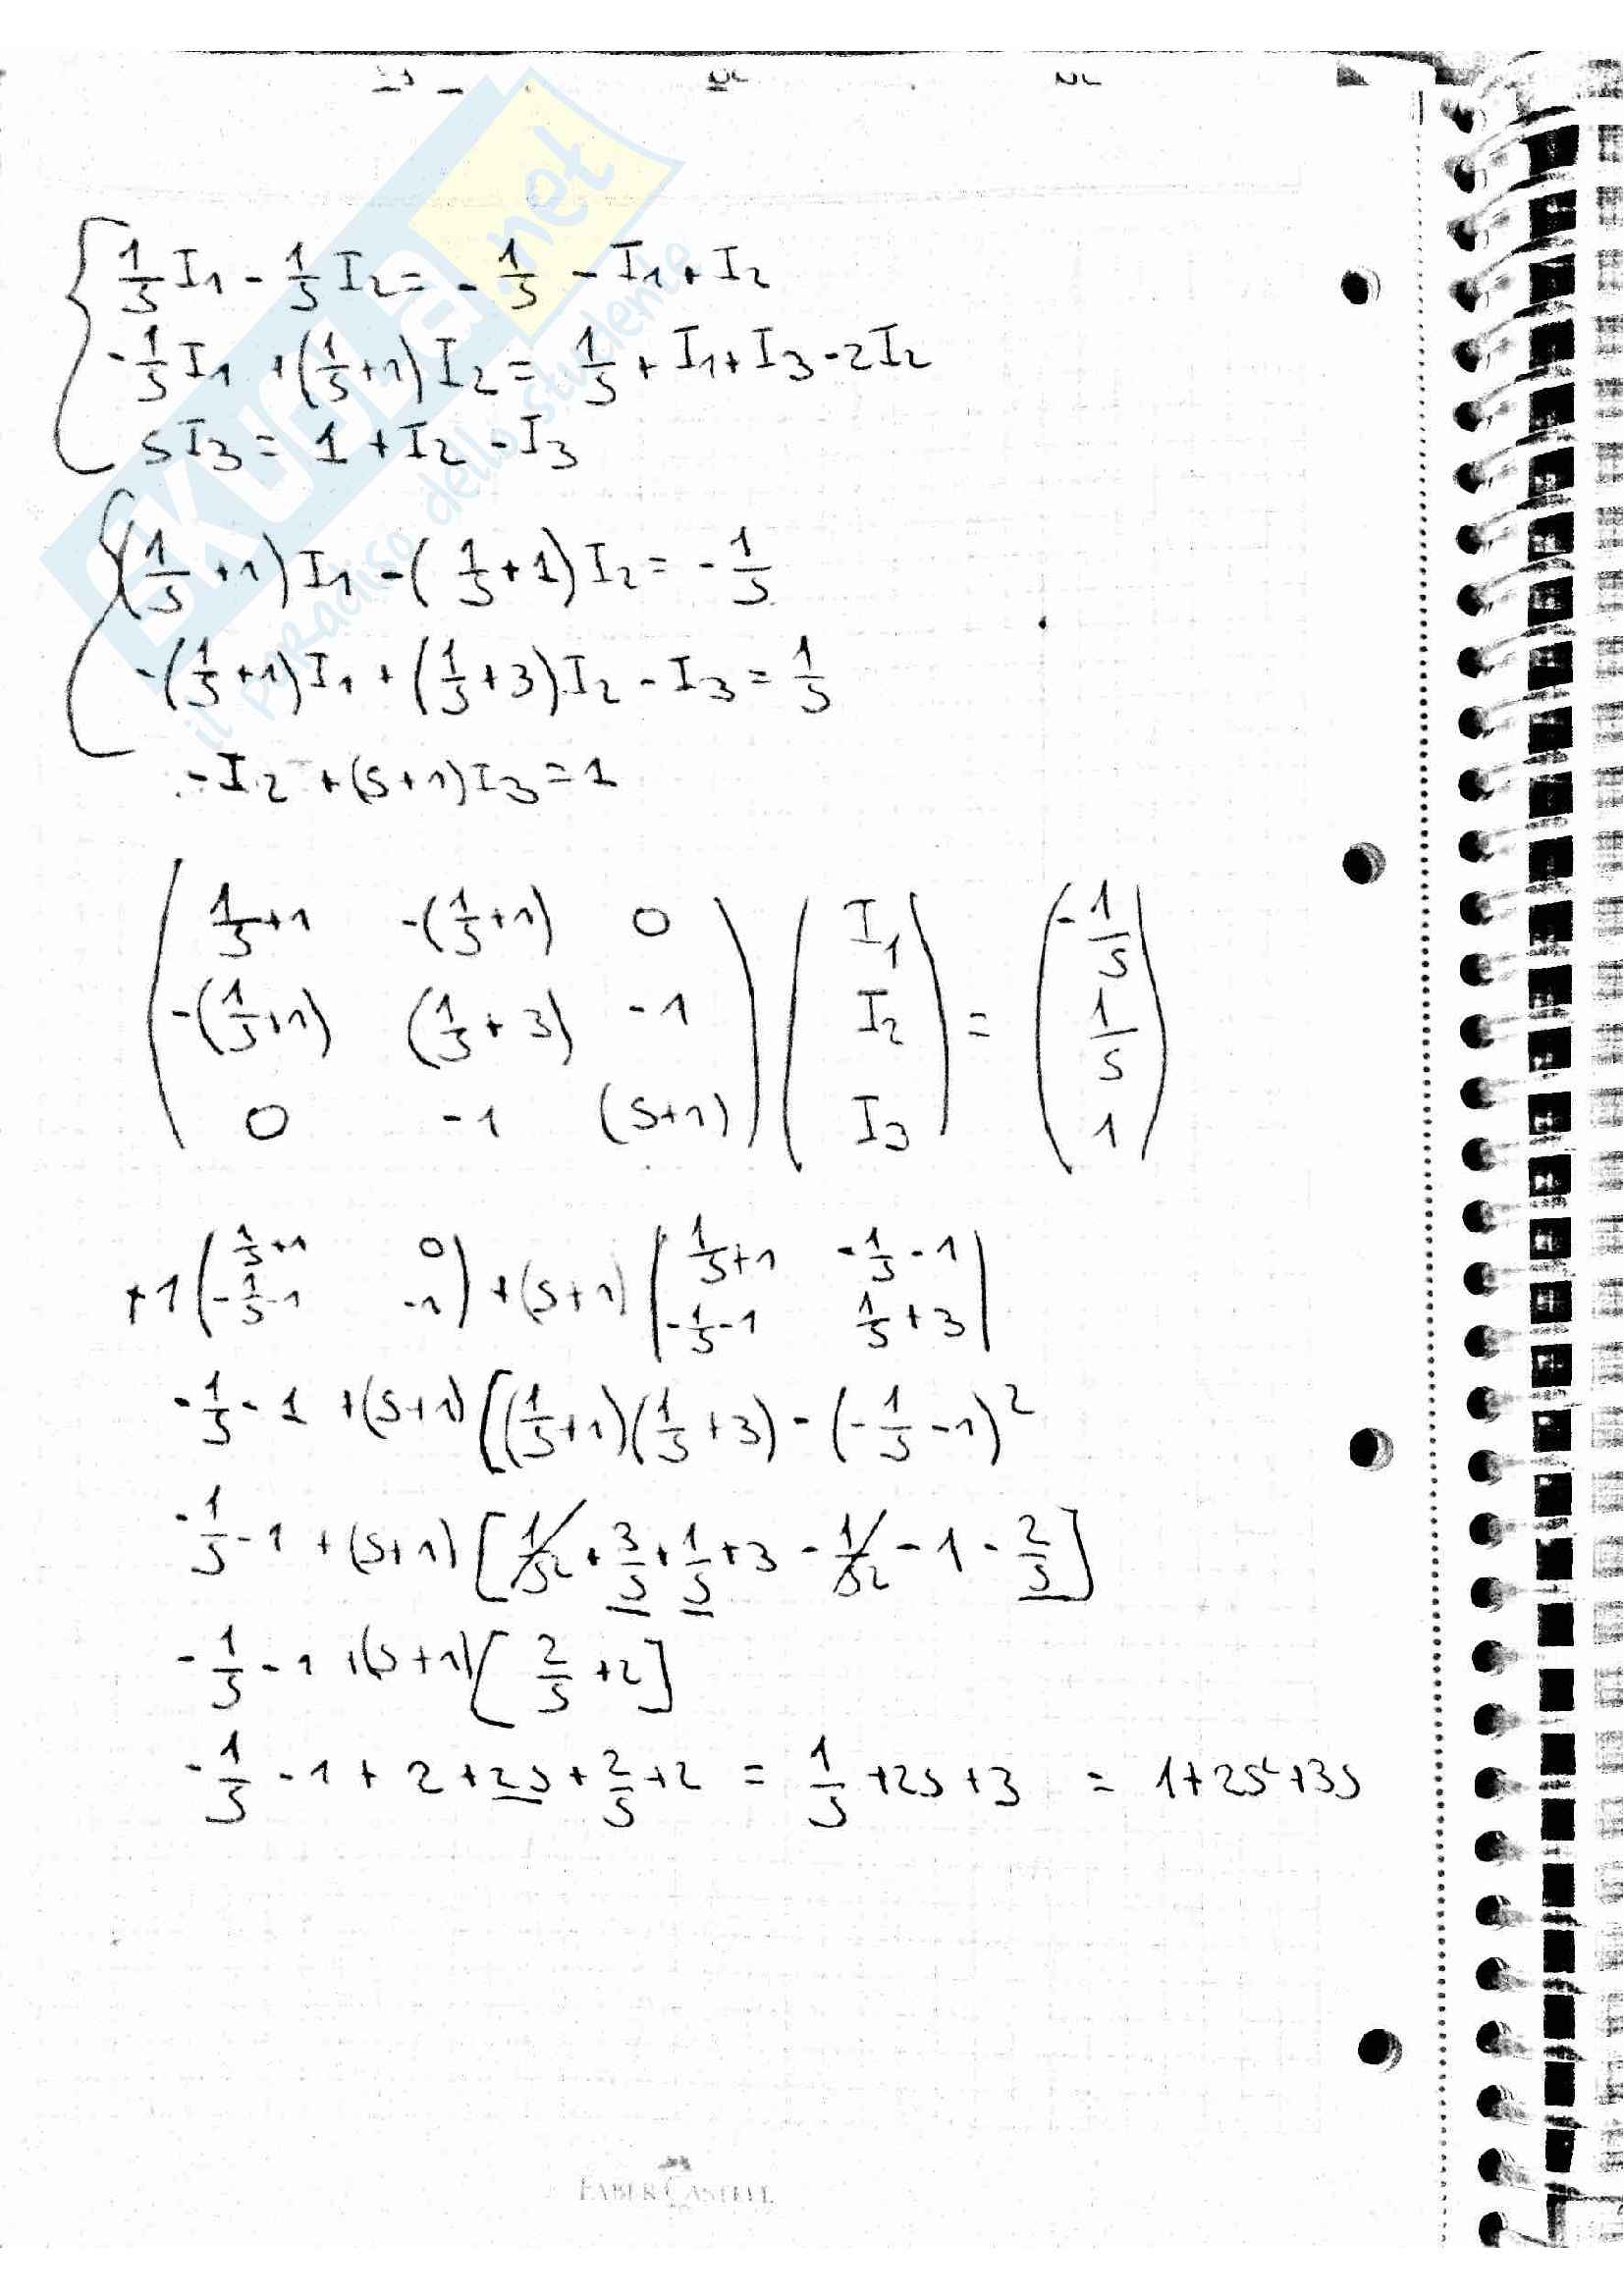 SKUOLA.net
il paradiso dello studente
1/s I1 - 1/s I2 = - 1/s - I1 + I2
- 1/s I1 + (1/s +1) I2 = 1/s + I1 + I3 - 2I2
s I3 = 1 + I2 - I3
(1/s +1) I1 - (1/s +1) I2 = - 1/s
-(1/s +1) I1 + (1/s +3) I2 - I3 = 1/s
- I2 + (s+1) I3 = 1
( 1/s +1 -(1/s +1) 0 ) ( I1 ) = ( - 1/s )
( -(1/s +1) (1/s +3) -1 ) ( I2 ) ( 1/s )
( 0 -1 (s+1) ) ( I3 ) ( 1 )
+1 ( 1/s +1 0 ) + (s+1) | 1/s +1 - 1/s -1 |
( - 1/s -1 -1 ) | - 1/s -1 1/s +3 |
- 1/s - 1 + (s+1) [(1/s +1)(1/s +3) - (- 1/s -1)²
- 1/s - 1 + (s+1) [ 1/s² + 3/s + 1/s + 3 - 1/s² - 1 - 2/s ]
- 1/s - 1 + (s+1) [ 2/s + 2 ]
- 1/s - 1 + 2 + 2s + 2/s + 2 = 1/s + 2s + 3 = 1 + 2s² + 3s
FABER CASTELL